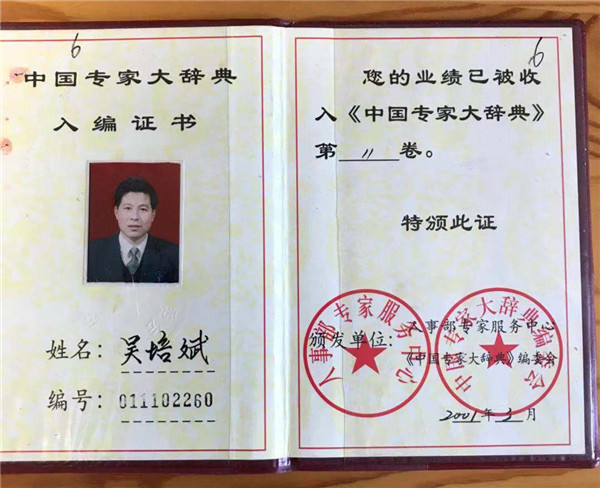 6
中国专家大辞典
入编证书
姓名：吴培斌
编号：011102260
6
您的业绩已被收
入《中国专家大辞典》
第 11 卷。
特颁此证
颁发单位：人事部专家服务中心
《中国专家大辞典》编委会
人事部专家服务中心
中国专家大辞典编委会
2001年3月